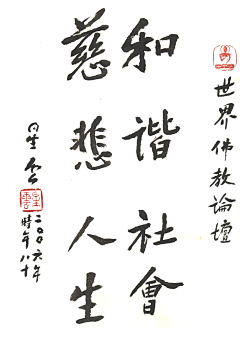 世界佛教論壇
和諧社會
慈悲人生
星雲
二〇〇六年
時年八十